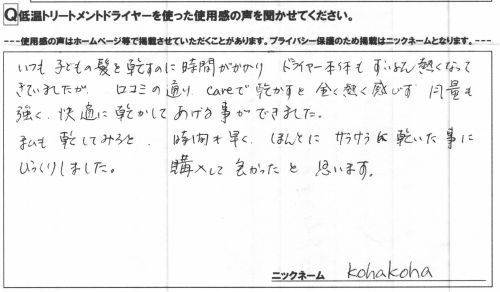 Q低温トリートメントドライヤーを使った使用感の声を聞かせてください。
---使用感の声はホームページ等で掲載させていただくことがあります。プライバシー保護のため掲載はニックネームとなります。---
いつも子どもの髪を乾すのに時間がかかり ドライヤー本体もずいぶん熱くなって
きていましたが、口コミの通り、careで乾かすと全く熱く感じず 風量も
強く、快適に乾かしてあげる事ができました。
私も乾してみると、時間も早く、ほんとに サラサラに乾いた事に
びっくりしました。 購入して良かったと思います。
ニックネーム kohakoha